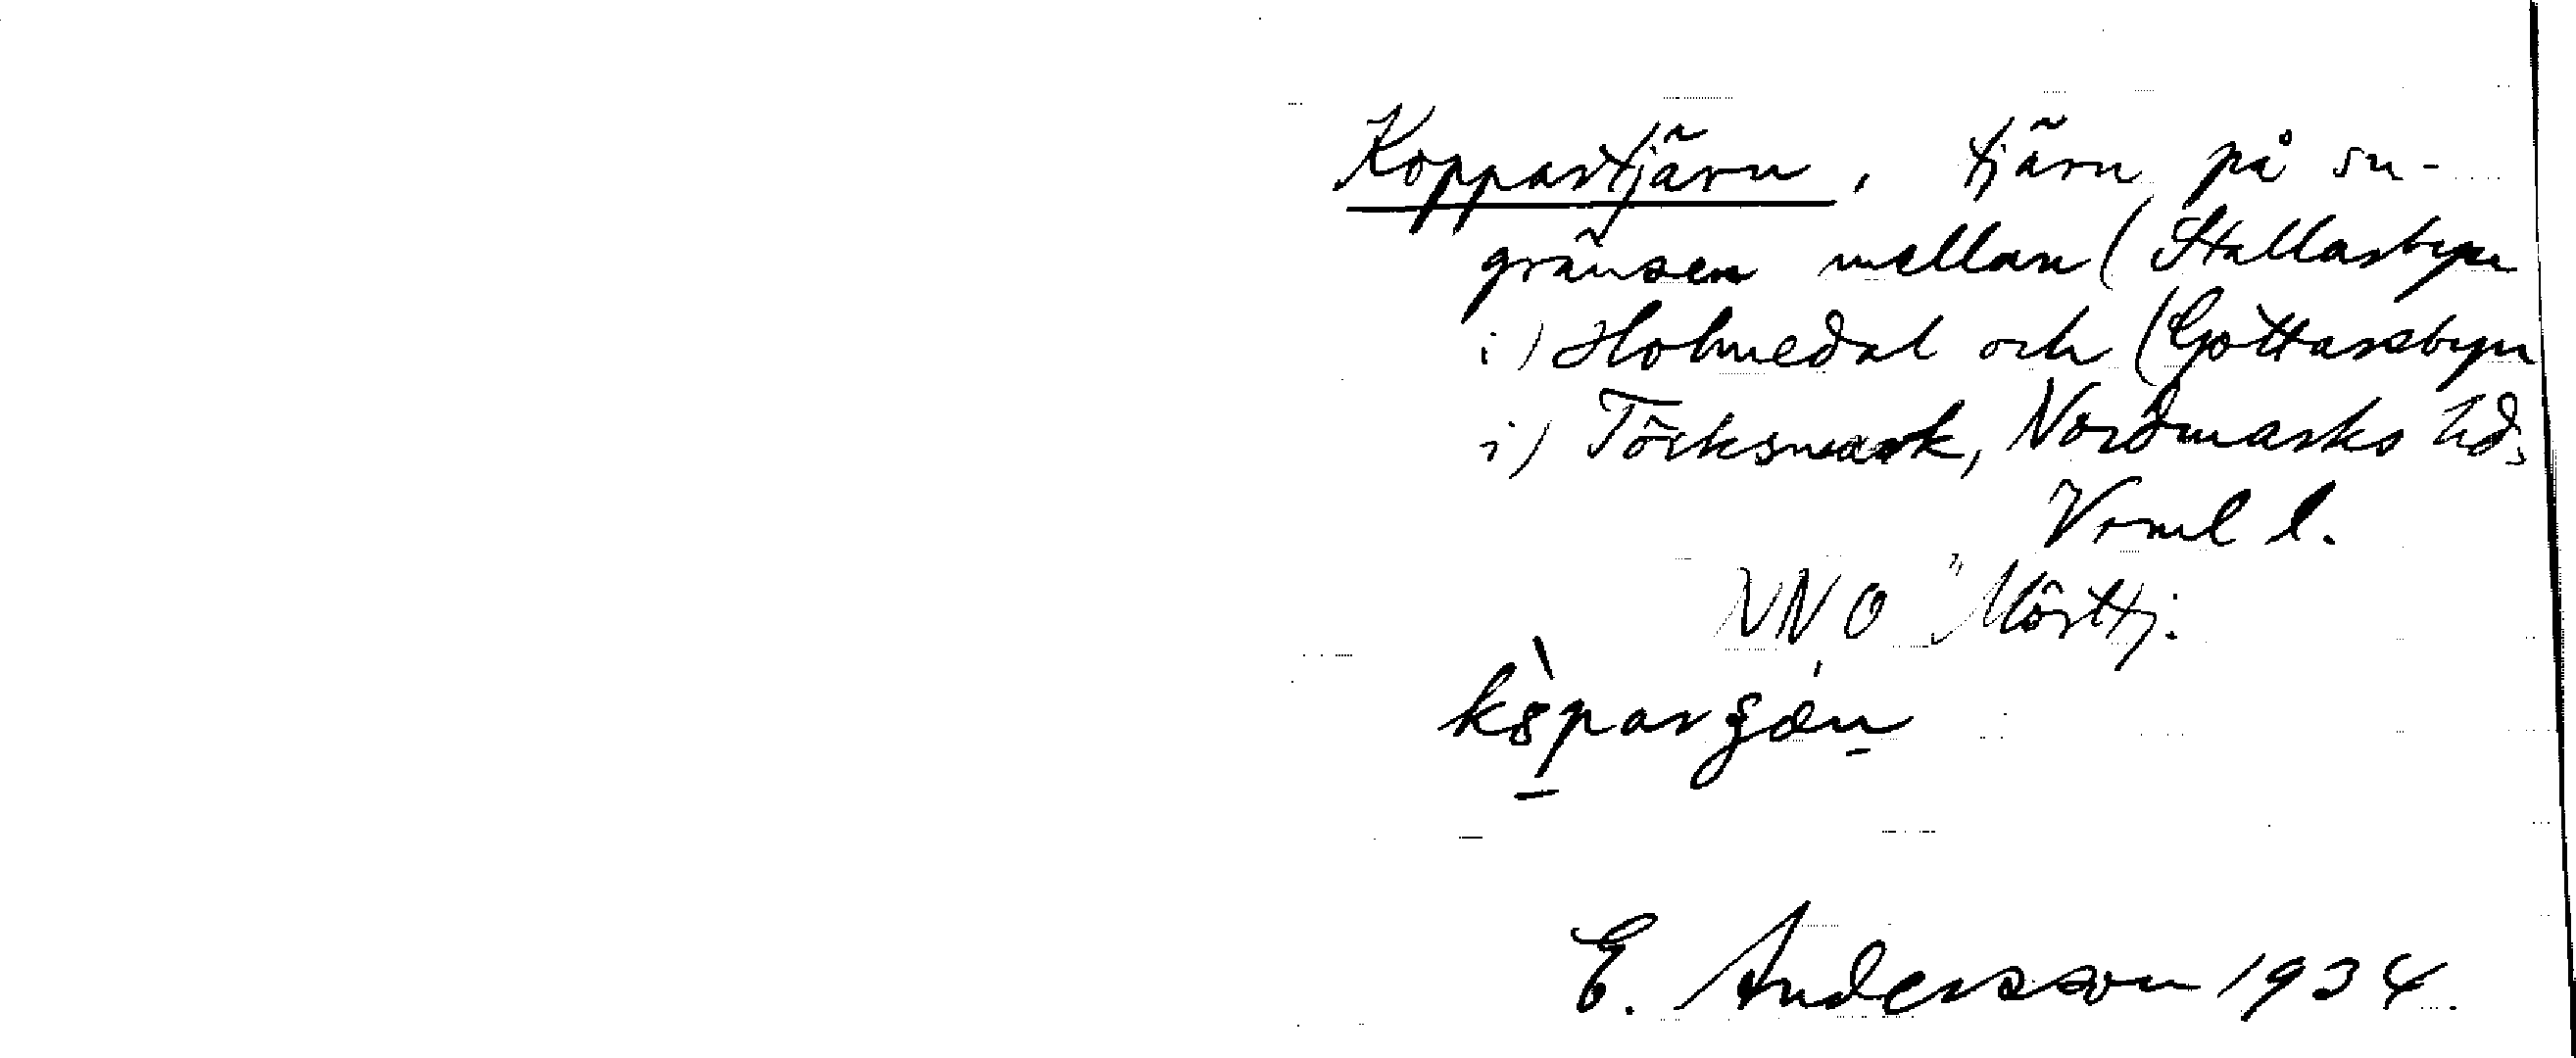 Koppartjärn, tjärn på sn-
gränsen mellan (Stallarbyn
i) Holmedal och (Gottarsbyn
i) Töcksmark, Nordmarks hd,
Vrml l.
NNO Mörttj.
E. Andersson 1934.